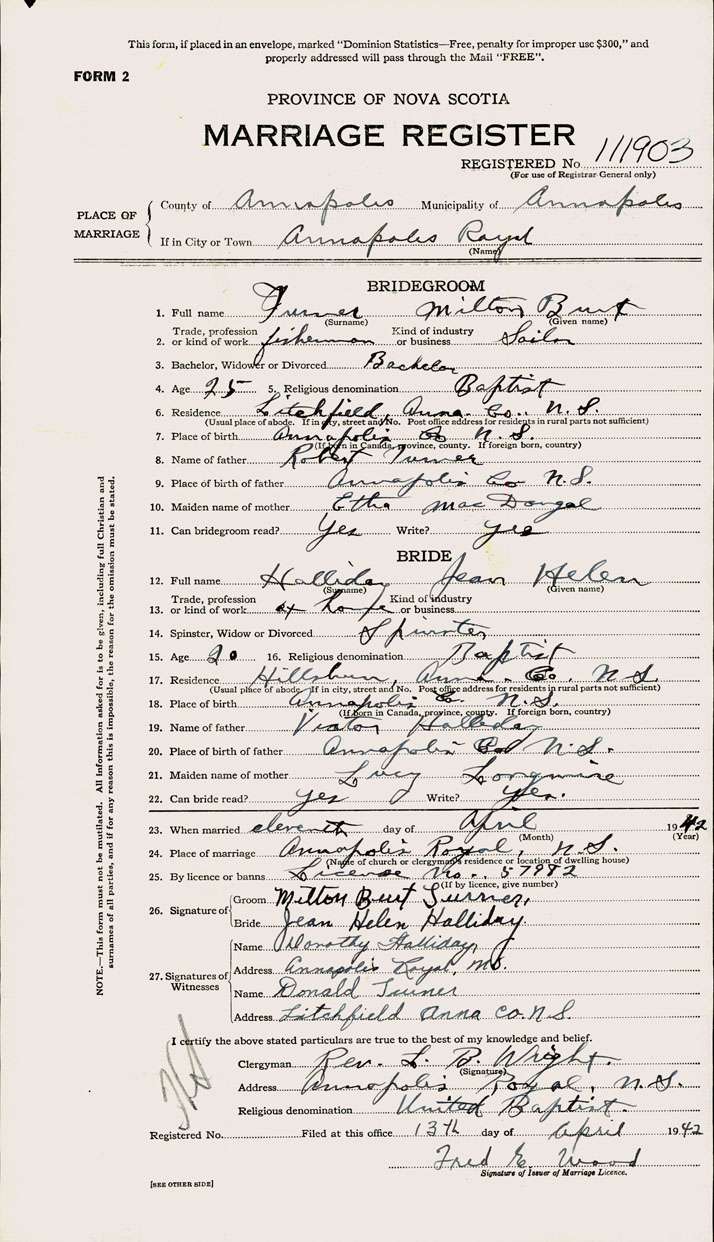 This form, if placed in an envelope, marked "Dominion Statistics—Free, penalty for improper use $300," and
properly addressed will pass through the Mail "FREE".
FORM 2
PROVINCE OF NOVA SCOTIA
MARRIAGE REGISTER
REGISTERED No. 111903
(For use of Registrar-General only)
PLACE OF MARRIAGE
County of Annapolis Municipality of Annapolis
If in City or Town Annapolis Royal
(Name)
BRIDEGROOM
1. Full name Turner Milton Burt
(Surname) (Given name)
2. Trade, profession or kind of work fisherman Kind of industry or business Sailor
3. Bachelor, Widower or Divorced Bachelor
4. Age 25 5. Religious denomination Baptist
6. Residence Litchfield, Anna. Co. N.S.
(Usual place of abode. If in city, street and No. Post office address for residents in rural parts not sufficient)
7. Place of birth Annapolis Co N.S.
(If born in Canada, province, county. If foreign born, country)
8. Name of father Robert Turner
9. Place of birth of father Annapolis Co N.S.
10. Maiden name of mother Etha MacDougal
11. Can bridegroom read? Yes Write? yes
BRIDE
12. Full name Halliday Jean Helen
(Surname) (Given name)
13. Trade, profession or kind of work at home Kind of industry or business
14. Spinster, Widow or Divorced Spinster
15. Age 20 16. Religious denomination Baptist
17. Residence Hillsburn, Anna. Co. N.S.
(Usual place of abode. If in city, street and No. Post office address for residents in rural parts not sufficient)
18. Place of birth Annapolis Co N.S.
(If born in Canada, province, county. If foreign born, country)
19. Name of father Victor Halliday
20. Place of birth of father Annapolis Co N.S.
21. Maiden name of mother Lucy Longmire
22. Can bride read? yes Write? yes.
23. When married eleventh day of April 1942
(Month) (Year)
24. Place of marriage Annapolis Royal, N.S.
(Name of church or clergyman's residence or location of dwelling house)
25. By licence or banns License No. 57982
(If by licence, give number)
26. Signature of
Groom Milton Burt Turner,
Bride Jean Helen Halliday
27. Signatures of Witnesses
Name Dorothy Halliday,
Address Annapolis Royal, N.S.
Name Donald Turner
Address Litchfield Anna Co. N.S.
I certify the above stated particulars are true to the best of my knowledge and belief.
Clergyman Rev. L. B. Wright.
(Signature)
Address Annapolis Royal, N.S.
Religious denomination United Baptist.
Registered No. Filed at this office 13th day of April 1942
Fred E. Wood
Signature of Issuer of Marriage Licence.
[SEE OTHER SIDE]
NOTE.—This form must not be mutilated. All Information asked for is to be given, including full Christian and
surnames of all parties, and if for any reason this is impossible, the reason for the omission must be stated.